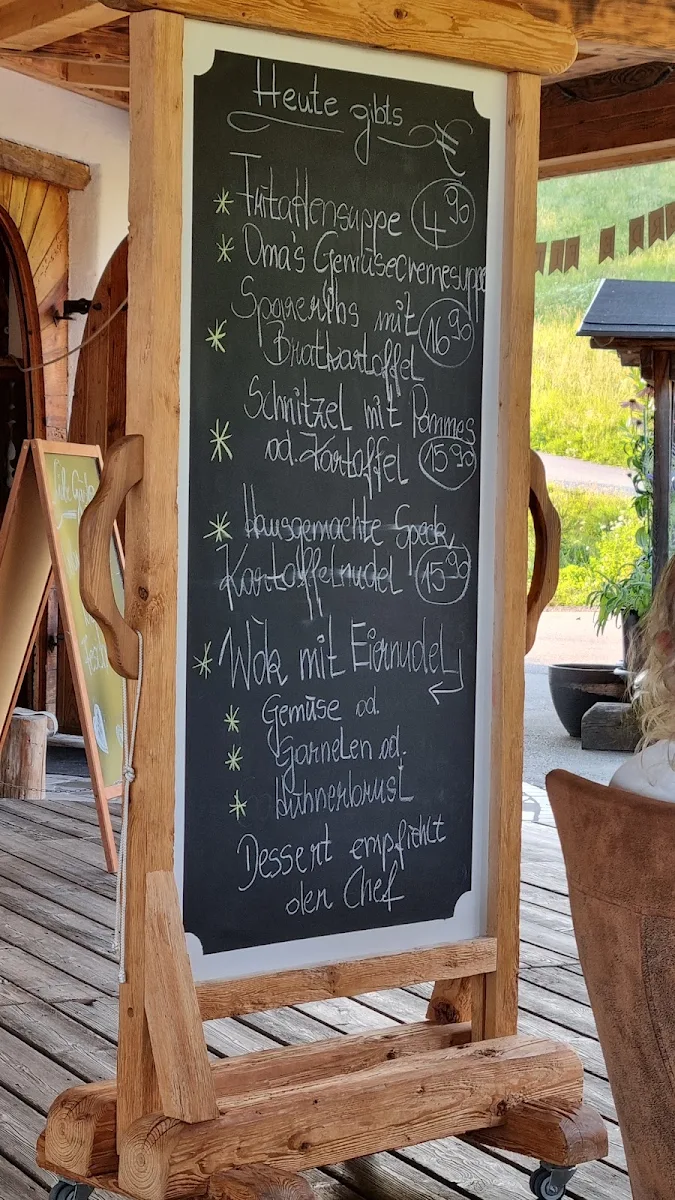 Heute gibts
€
* Fritattensuppe 4,90
* Oma's Gemüsecremesuppe
Spareribs mit 16,90
* Bratkartoffel
Schnitzel mit Pommes
* od. Kartoffel 15,90
* Hausgemachte Speck
Kartoffelnudel 15,90
* Wok mit Eiernudel
* Gemüse od.
* Garnelen od.
* Hühnerbrust
Dessert empfiehlt
der Chef